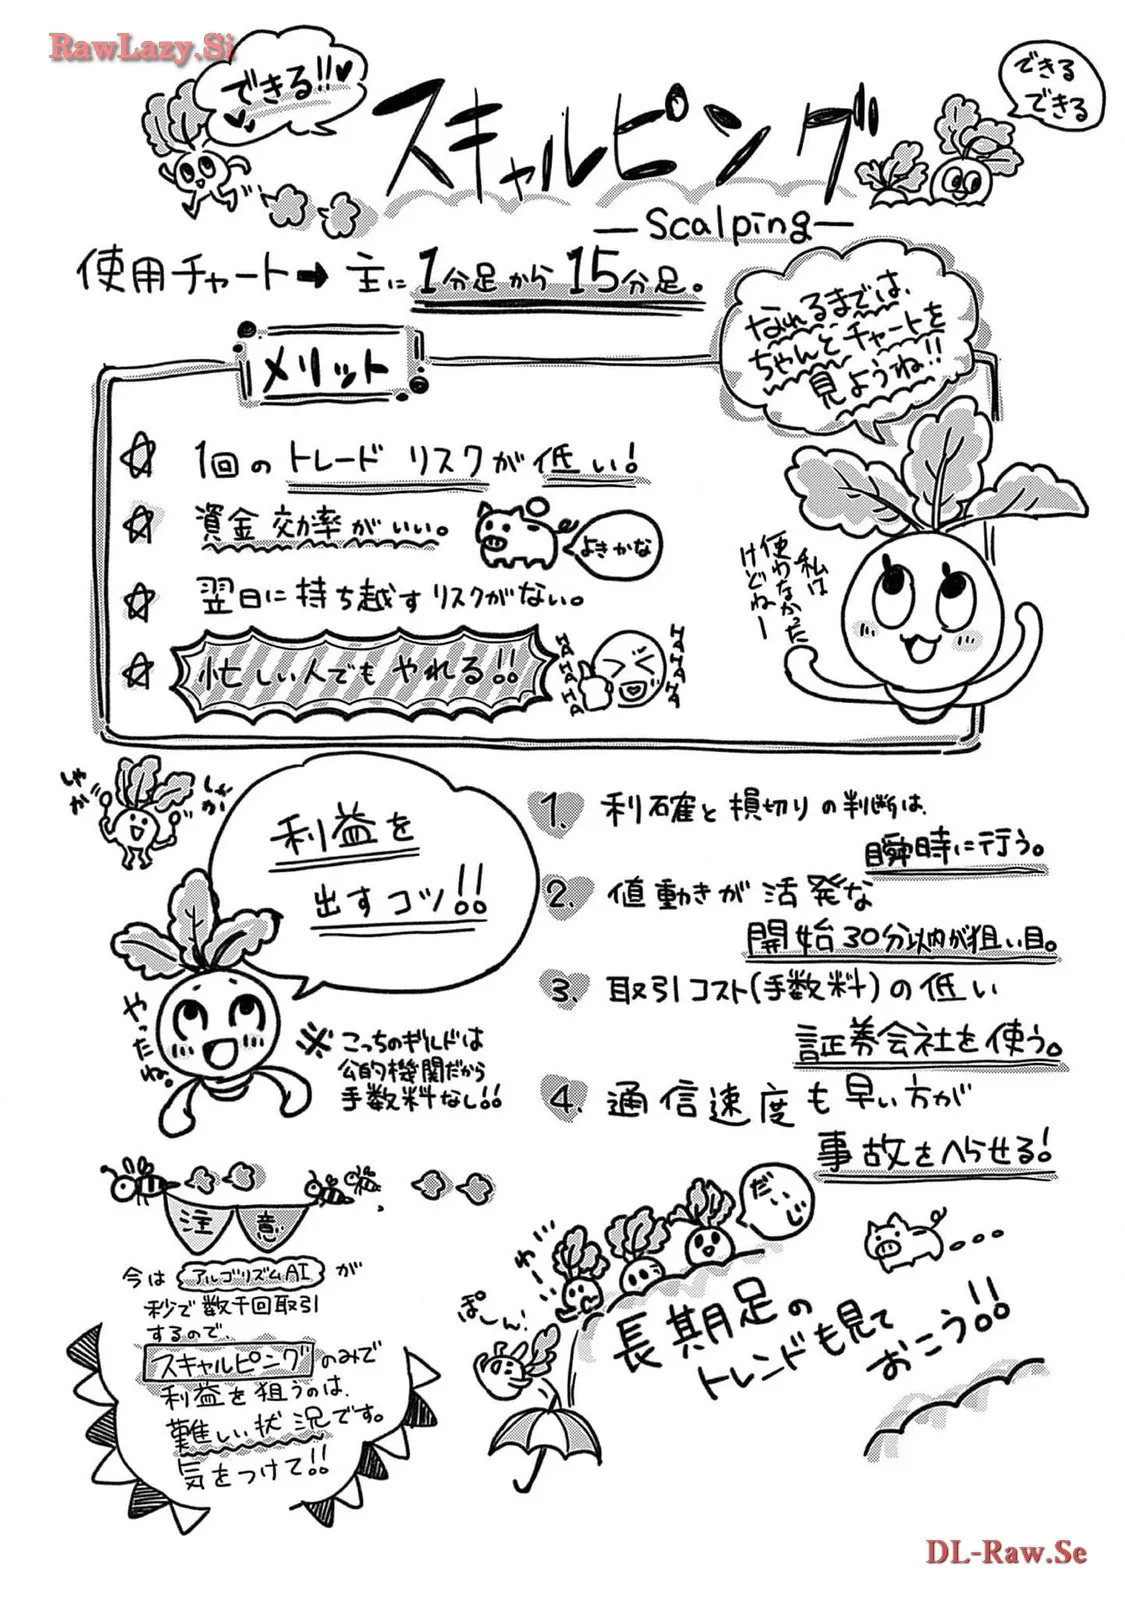 RawLazy.Si
できる!!
できる
できる
スキャルピング
—Scalping—
使用チャート➡主に1分足から15分足。
なれるまでは、
ちゃんとチャートを
見ようね!!
メリット
☆ 1回のトレードリスクが低い!
☆ 資金効率がいい。
よきかな
☆ 翌日に持ち越すリスクがない。
☆ 忙しい人でもやれる!!
HAHAHAHA
HAHAHAHA
私は
使わなかった
けどねー
しゃか
しゃか
利益を
出すコツ!!
やったね。
※こっちのギルドは
公的機関だから
手数料なし!!
1. 利確と損切りの判断は、
瞬時に行う。
2. 値動きが活発な
開始30分以内が狙い目。
3. 取引コスト(手数料)の低い
証券会社を使う。
4. 通信速度も早い方が
事故をへらせる!
注意
今はアルゴリズムAIが
秒で数千回取引
するので、
スキャルピングのみで
利益を狙うのは、
難しい状況です。
気をつけて!!
だいじ
わー
ぽしん!
長期足の
トレンドも見て
おこう!!
DL-Raw.Se